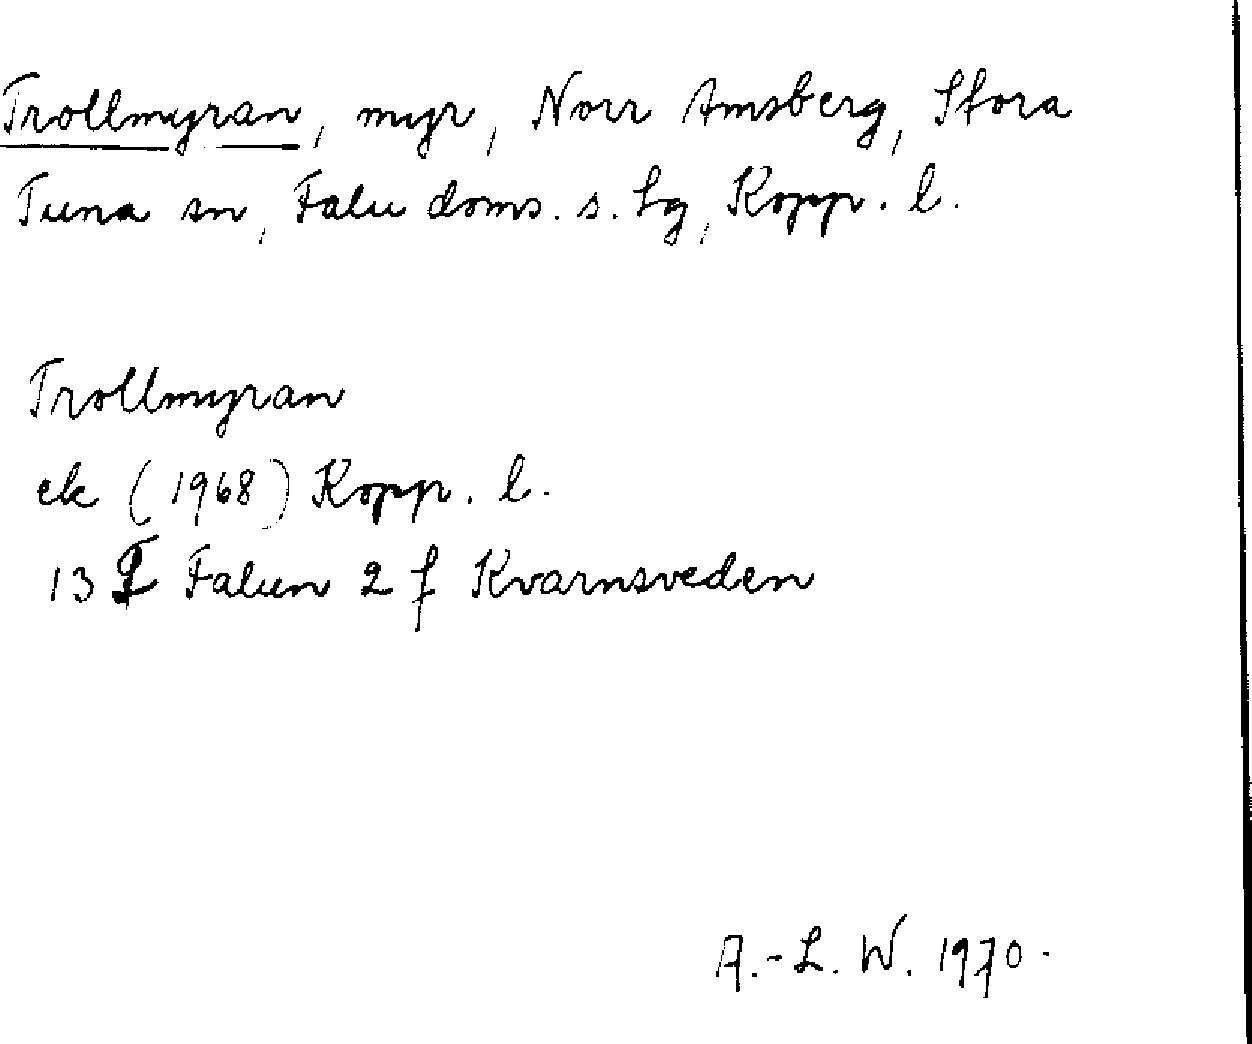 Trollmyran, myr, Norr Amsberg, Stora
Tuna sn, Falu doms. s. lg, Kopp. l.
Trollmyran
ek (1968) Kopp. l.
13 F Falun 2 f Kvarnsveden
A.-L. W. 1970.